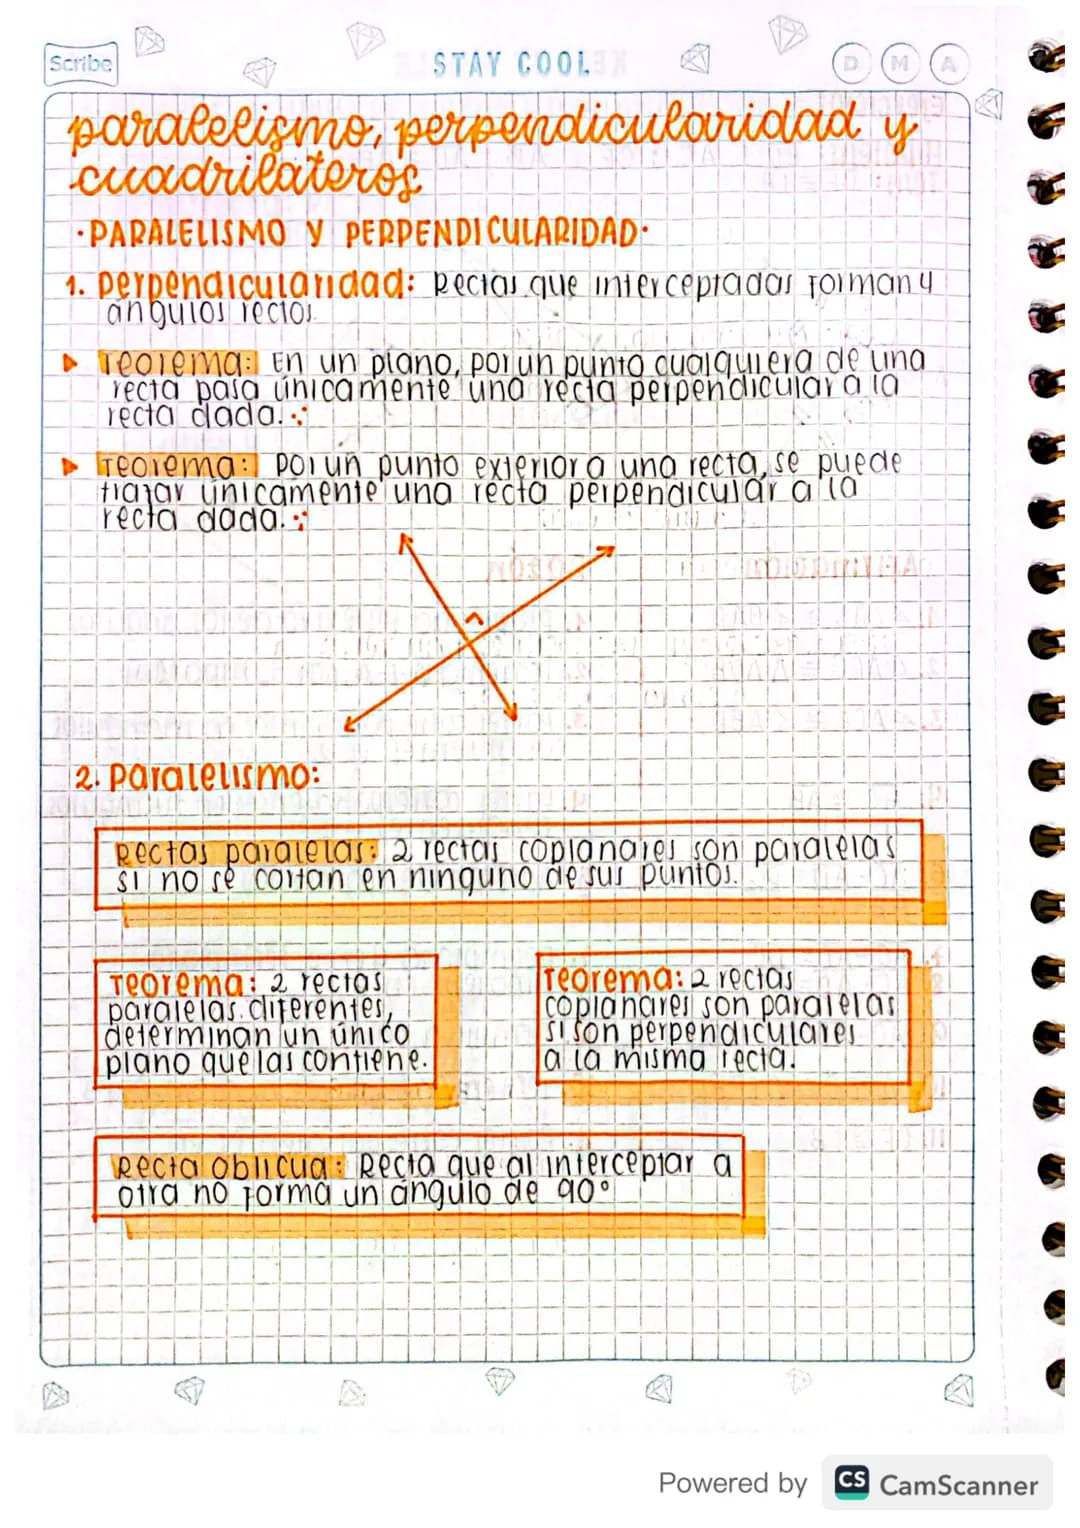 Scribe
STAY COOL
D M A
paralelismo, perpendicularidad y
cuadriláteros.
·PARALELISMO Y PERPENDICULARIDAD·
1. Perpendicularidad: Rectas que interceptadas forman 4
ángulos rectos
Teorema: En un plano, por un punto cualquiera de una
recta pasa únicamente una recta perpendicular a la
recta dada.
Teorema: por un punto exterior a una recta, se puede
trazar únicamente una recta perpendicular a la
recta dada.
2. Paralelismo:
Rectas paralelas: 2 rectas coplanares son paralelas
si no se cortan en ninguno de sus puntos.
Teorema: 2 rectas
paralelas diferentes,
determinan un único
plano que las contiene.
Teorema: 2 rectas
coplanares son paralelas
si son perpendiculares
a la misma recta.
Recta oblicua: Recta que al interceptar a
otra no forma un ángulo de 90°
Powered by CS CamScanner